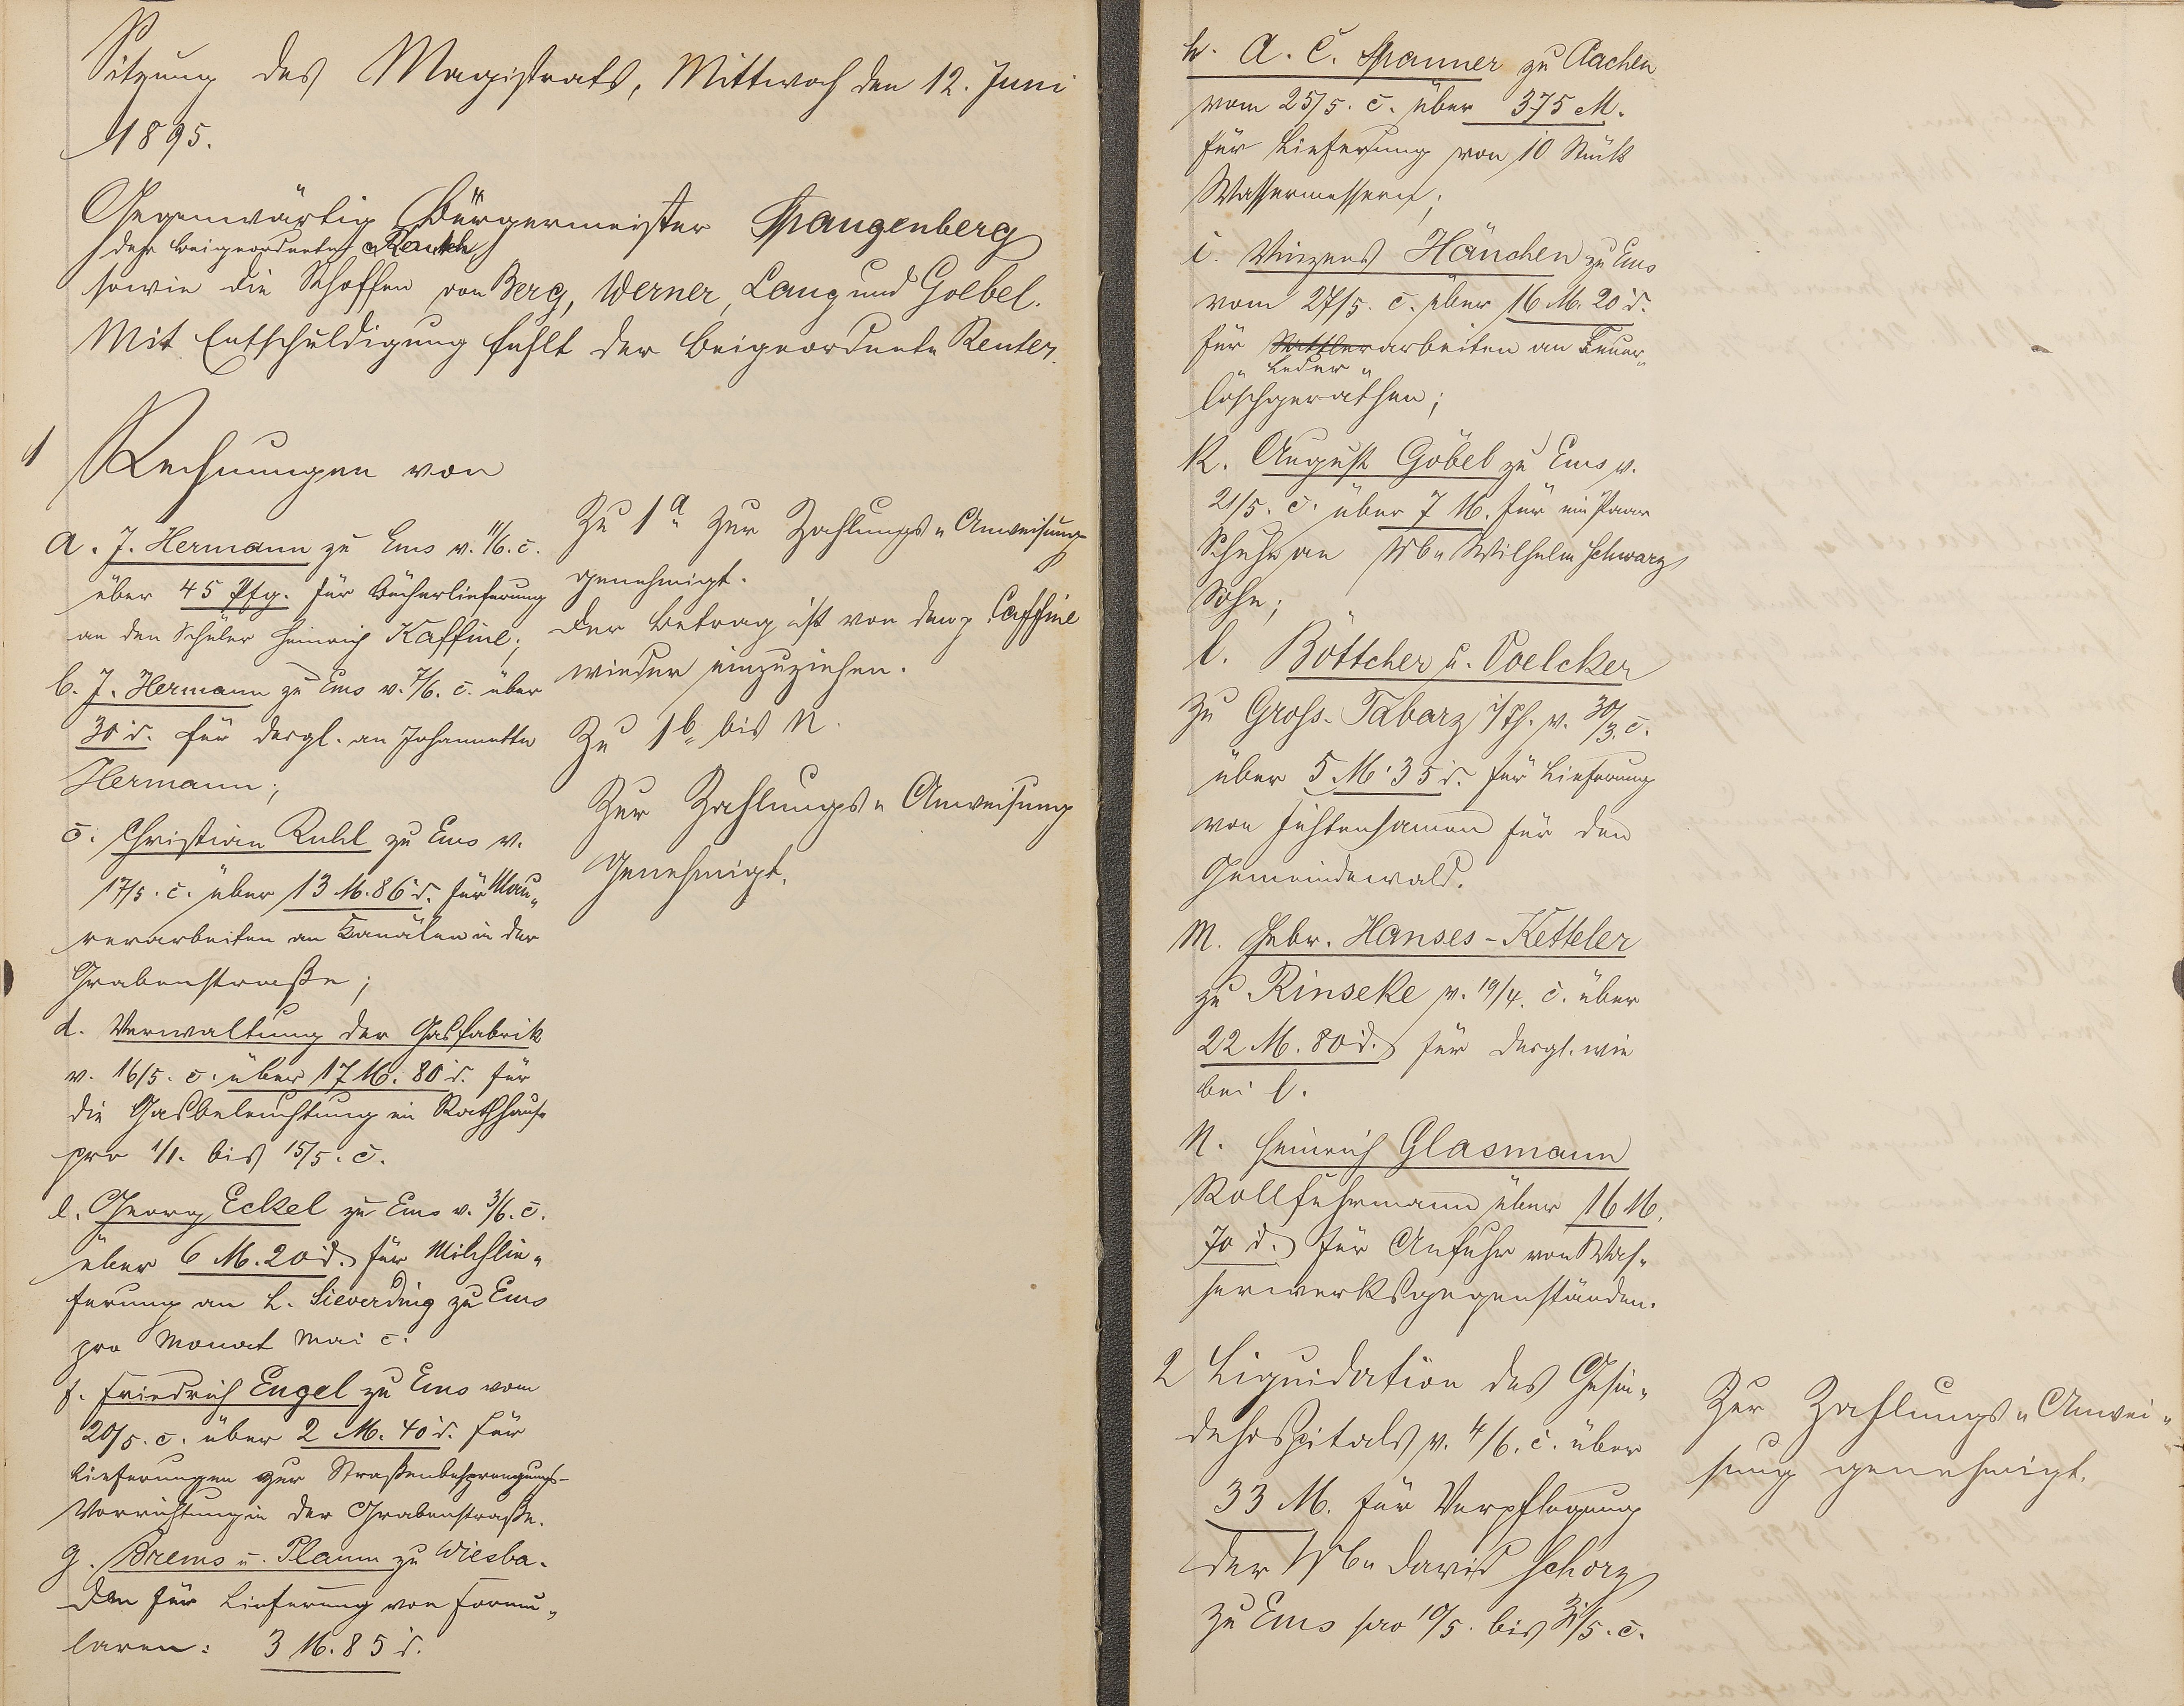 Sitzung des Magistrats, Mittwoch den 12. Juni
1895.
Gegenwärtig Bürgermeister Spangenberg
der Beigeordnete
sowie die Schöffen von Berg, Werner, Lang und Goebel.
Mit Entschuldigung fehlt der Beigeordnete Reuter.
1 Rechnungen von
a. J. Hermann zu Ems v. 11/6. c.
über 45 Pfg. für Bücherlieferung
an den Schüler Heinrich Kaffine;
b. J. Hermann zu Ems v. 7/6. c. über
30 d. für desgl. an Johannette
Hermann;
c. Christian Ruhl zu Ems v.
17/5. c. über 13 M. 86 d. für Mau„
rerarbeiten an Kanälen in der
Grabenstraße;
d. Verwaltung der Gasfabrik
v. 16/5. c. über 17 M. 80 d. für
die Gasbeleuchtung im Rathhause
pro 1/1. bis 15/5. c.
e. Georg Eckel zu Ems v. 3/6. c.
über 6 M. 20 d. für Milchlie„
ferung an L. Sieverding zu Ems
pro Monat Mai c.
f. Friedrich Engel zu Ems vom
20/5. c. über 2 M. 40 d. für
Lieferungen zur Straßenbesprengungs-
Vorrichtung in der Grabenstraße.
g. Brems u. Plaum zu Wiesba„
den für Lieferung von Formu„
laren: 3 M. 85 d.
Zu 1a„ zur Zahlungs„Anweisung
genehmigt.
Der Betrag ist von dem p. Caffine
wieder einzuziehen.
Zu 1b„ bis n.
Zur Zahlungs„Anweisung
Genehmigt.
h. A. C. Spanner zu Aachen
vom 25/5. c. über 375 M.
für Lieferung von 10 Stück
Wassermessern;
i. Vinzens Hänchen zu Ems
vom 27/5. c. über 16 M. 20 d.
für Sattlerarbeiten an Feuer„
„Leder„
löschgeräthen;
k. August Göbel zu Ems v.
21/5. c. über 7 M. für ein Paar
Schuhe an Wb„ Wilhelm Schwarz
Sohn;
l. Böttcher u. Voelcker
zu Gross-Tabarz i/Th. v. 30/3. c.
über 5 M. 35 d. für Lieferung
von Fichtensamen für den
Gemeindewald.
m. Gebr. Hanses-Ketteler
zu Rinseke v. 19/4. c. über
22 M. 80 d. für desgl. wie
bei l.
n. Heinrich Glasmann
Rollfuhrmann über 16 M.
70 d. für Anfuhr von Was„
serwerksgegenständen.
2 Liquidation des Gesin„
dehospitals v. 4/6. c. über
33 M. für Verpflegung
der Wb„ David Schorz
zu Ems pro 10/5. bis 31/5. c.
Zur Zahlungs„Anwei„
sung genehmigt.